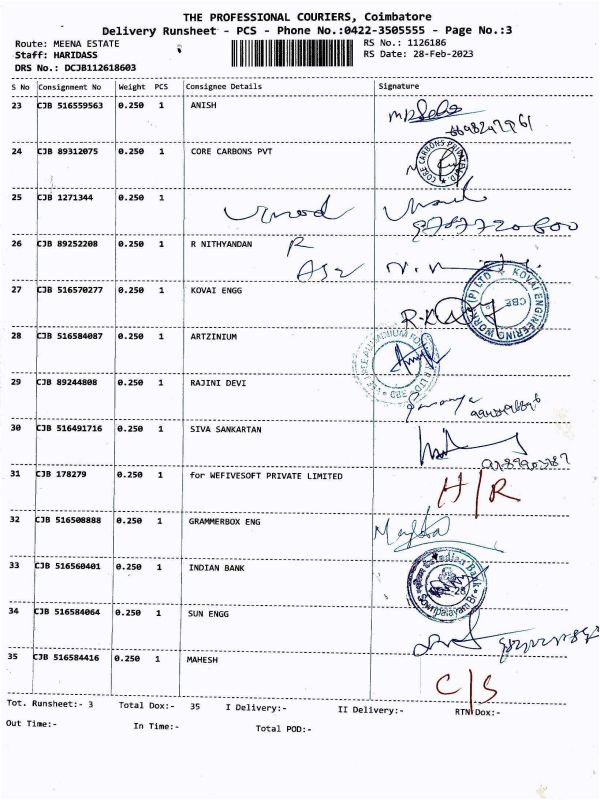 THE PROFESSIONAL COURIERS, Coimbatore
Delivery Runsheet - PCS - Phone No.:0422-3505555 - Page No.:3
Route: MEENA ESTATE RS No.: 1126186
Staff: HARIDASS RS Date: 28-Feb-2023
DRS No.: DCJB112618603
S No Consignment No Weight PCS Consignee Details Signature
23 CJB 516559563 0.250 1 ANISH
24 CJB 89312075 0.250 1 CORE CARBONS PVT
CORE CARBONS PRIVATE LTD.
25 CJB 1271344 0.250 1 Vinod
26 CJB 89252208 0.250 1 R NITHYANDAN R
27 CJB 516570277 0.250 1 KOVAI ENGG
KOVAI ENGINEERING WORK (P) LTD CBE
28 CJB 516584087 0.250 1 ARTZINIUM
29 CJB 89244808 0.250 1 RAJINI DEVI
30 CJB 516491716 0.250 1 SIVA SANKARTAN
31 CJB 178279 0.250 1 for WEFIVESOFT PRIVATE LIMITED H/R
32 CJB 516508888 0.250 1 GRAMMERBOX ENG
33 CJB 516560401 0.250 1 INDIAN BANK
Indian Bank Sowripalayam Br.
34 CJB 516584064 0.250 1 SUN ENGG
35 CJB 516584416 0.250 1 MAHESH C/S
Tot. Runsheet:- 3 Total Dox:- 35 I Delivery:- II Delivery:- RTN Dox:-
Out Time:- In Time:- Total POD:-